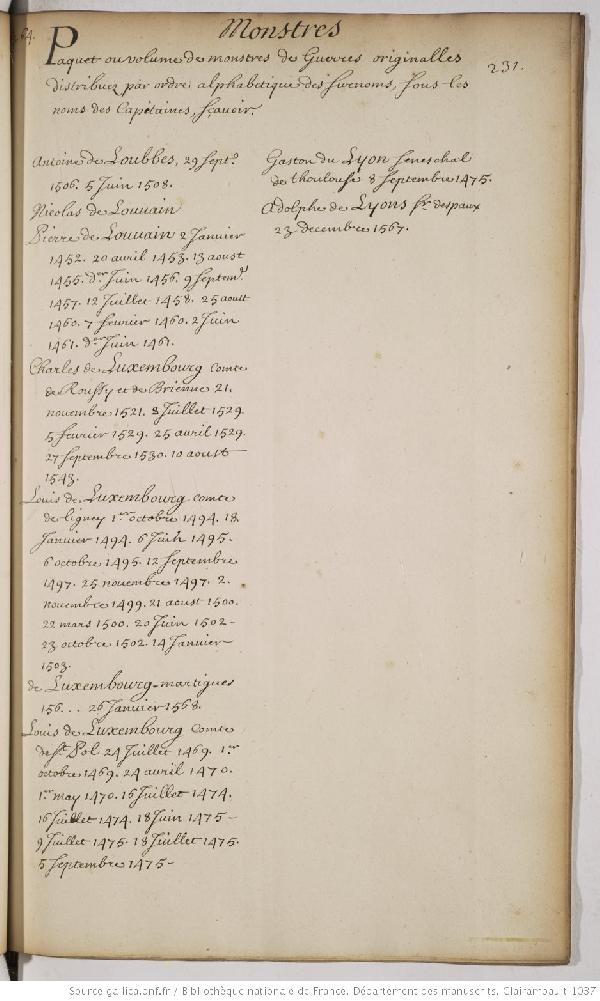 Monstres
64.
231.
Paquet ou volume de monstres de Guerres originalles
distribuez par ordre alphabetique des surnoms, sous les
noms des Capitaines, sçavoir.
Antoine de Loubbes, 29 sept.e
1506. 5 Juin 1508.
Nicolas de Louvain
Pierre de Louvain 2 Janvier
1452. 20 avril 1453. 13 aoust
1455. d.er Juin 1456. 9 septem.e
1457. 12 Juillet 1458. 25 aoust
1460. 7 fevrier 1460. 2 Juin
1461. d.er Juin 1461.
Charles de Luxembourg comte
de Roussy et de Brienne 21.
novembre 1521. 8 Juillet 1529.
5 fevrier 1529. 25 avril 1529.
27 septembre 1530. 10 aoust
1543.
Louis de Luxembourg comte
de ligney 1.er octobre 1494. 18.
Janvier 1494. 6 Juin 1495.
6 octobre 1495. 12 septembre
1497. 25 novembre 1497. 2.
novembre 1499. 21 aoust 1500.
22 mars 1500. 20 Juin 1502.
23 octobre 1502. 14 Janvier
1503.
de Luxembourg-martigues
156... 26 Janvier 1568.
Louis de Luxembourg Comte
de St Pol. 24 Juillet 1469. 1.er
octobre 1469. 24 avril 1470.
1.er may 1470. 16 Juillet 1474.
16 Juillet 1474. 18 Juin 1475
9 Juillet 1475. 18 Juillet 1475.
5 septembre 1475
Gaston du Lyon seneschal
de thoulouse 8 septembre 1475.
Adolphe de Lyons sr. despaux
23 decembre 1567.
Source gallica.bnf.fr / Bibliothèque nationale de France. Département des manuscrits. Clairambault 1037